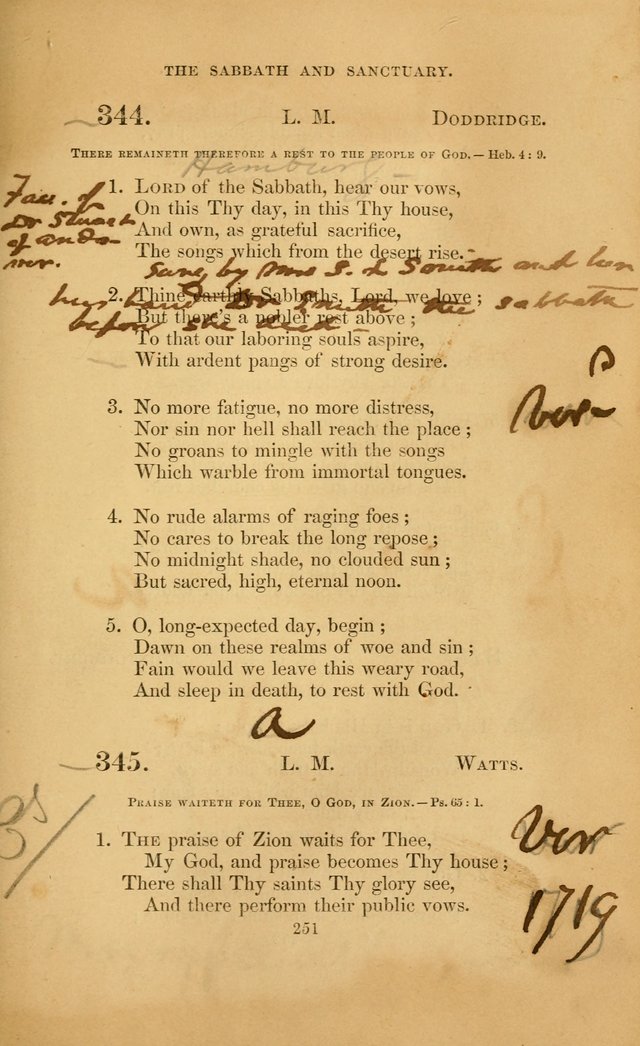 THE SABBATH AND SANCTUARY.
344. L. M. DODDRIDGE.
THERE REMAINETH THEREFORE A REST TO THE PEOPLE OF GOD. — Heb. 4 : 9.
Hamburg
Fav. of
Dr Stuart
of ando-
ver.
1. LORD of the Sabbath, hear our vows,
On this Thy day, in this Thy house,
And own, as grateful sacrifice,
The songs which from the desert rise.
Sung by Mrs S. L Smith and her
husband Dr Smith the sabbath
before she died
2. Thine earthly Sabbaths, Lord, we love ;
But there's a nobler rest above ;
To that our laboring souls aspire,
With ardent pangs of strong desire.
3. No more fatigue, no more distress,
Nor sin nor hell shall reach the place ;
No groans to mingle with the songs
Which warble from immortal tongues.
4. No rude alarms of raging foes ;
No cares to break the long repose ;
No midnight shade, no clouded sun ;
But sacred, high, eternal noon.
5. O, long-expected day, begin ;
Dawn on these realms of woe and sin ;
Fain would we leave this weary road,
And sleep in death, to rest with God.
a
345. L. M. WATTS.
PRAISE WAITETH FOR THEE, O GOD, IN ZION. — Ps. 65 : 1.
1. THE praise of Zion waits for Thee,
My God, and praise becomes Thy house ;
There shall Thy saints Thy glory see,
And there perform their public vows.
Ver
1719
251